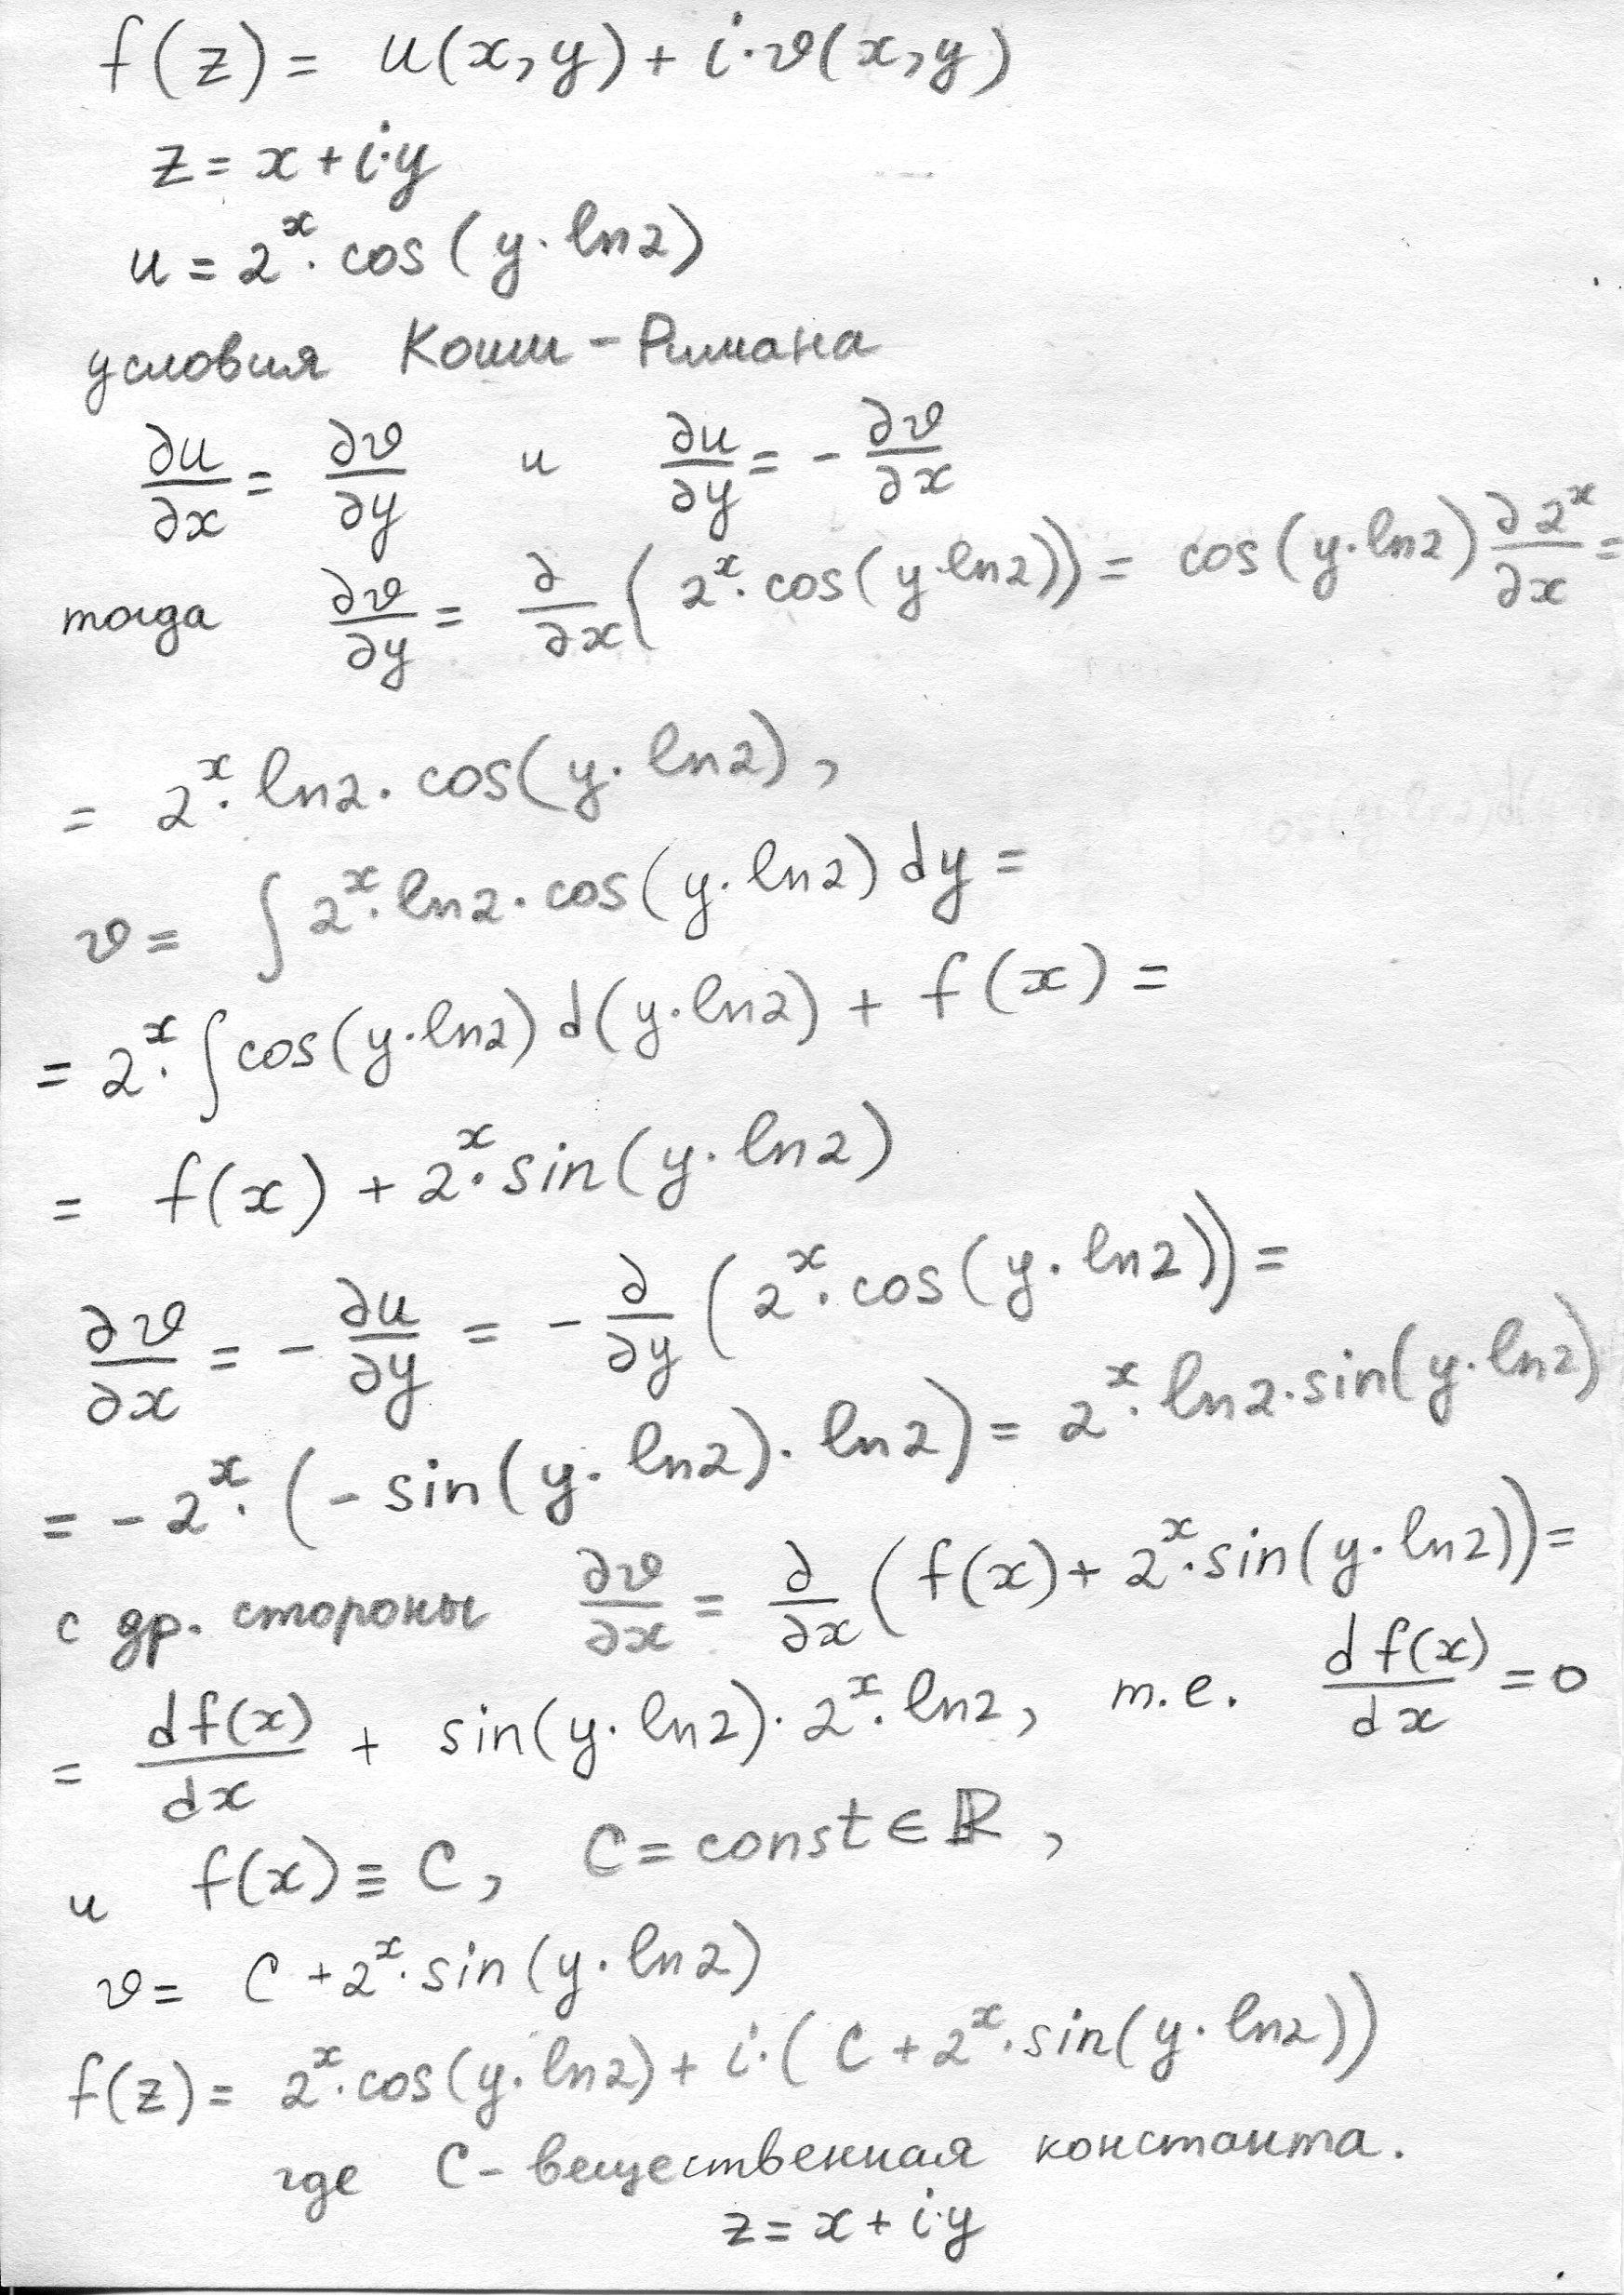 f(z) = u(x,y) + i·v(x,y)
z = x + i·y
u = 2^x · cos(y·ln2)
условия Коши – Римана
∂u/∂x = ∂v/∂y и ∂u/∂y = - ∂v/∂x
тогда ∂v/∂y = ∂/∂x (2^x · cos(y·ln2)) = cos(y·ln2) ∂2^x/∂x =
= 2^x · ln2 · cos(y·ln2),
v = ∫ 2^x · ln2 · cos(y·ln2) dy =
= 2^x · ∫ cos(y·ln2) d(y·ln2) + f(x) =
= f(x) + 2^x · sin(y·ln2)
∂v/∂x = - ∂u/∂y = - ∂/∂y (2^x · cos(y·ln2)) =
= - 2^x · (- sin(y·ln2) · ln2) = 2^x · ln2 · sin(y·ln2)
с др. стороны ∂v/∂x = ∂/∂x (f(x) + 2^x · sin(y·ln2)) =
= df(x)/dx + sin(y·ln2) · 2^x · ln2, т.е. df(x)/dx = 0
и f(x) ≡ C, C = const ∈ ℝ,
v = C + 2^x · sin(y·ln2)
f(z) = 2^x · cos(y·ln2) + i·(C + 2^x · sin(y·ln2))
где C – вещественная константа.
z = x + i·y